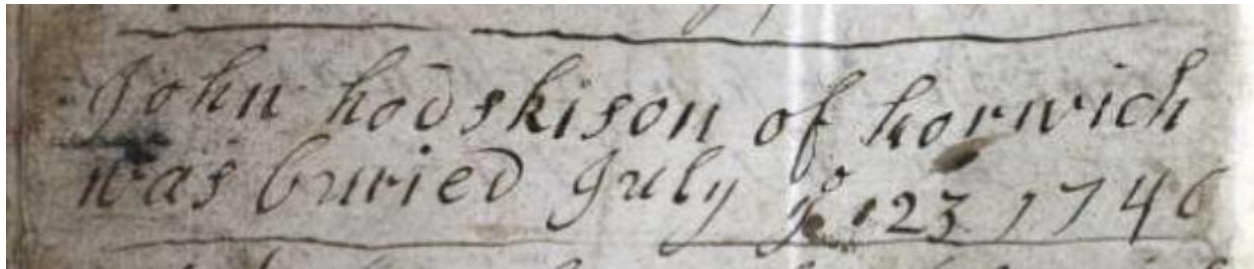 John hodskison of horwich
was buried July ye 23 1746